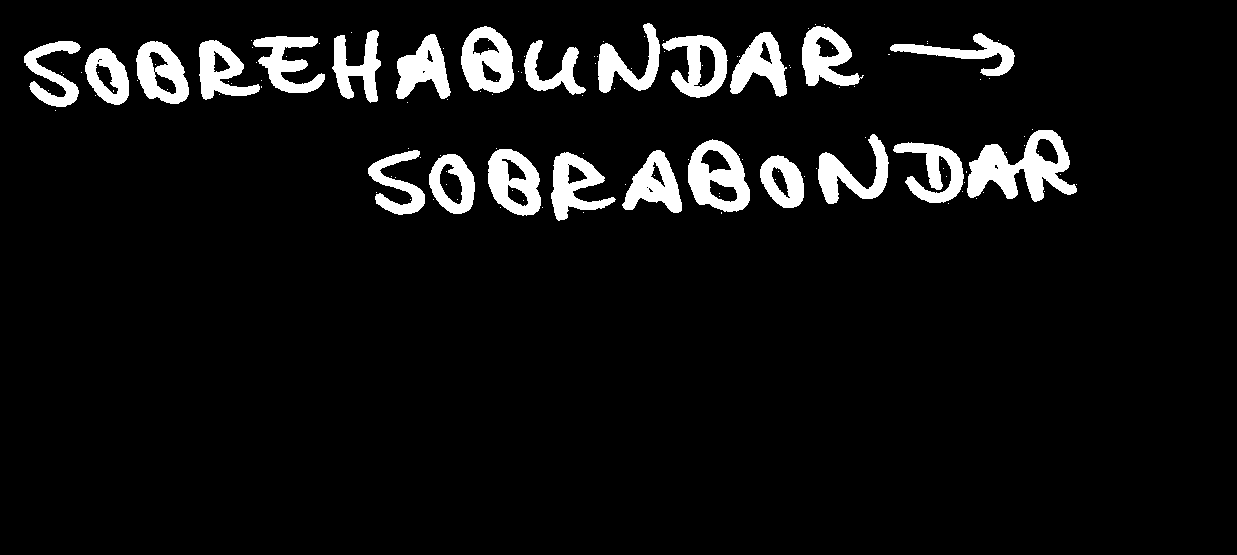 SOBREHABUNDAR →
SOBRABONDAR